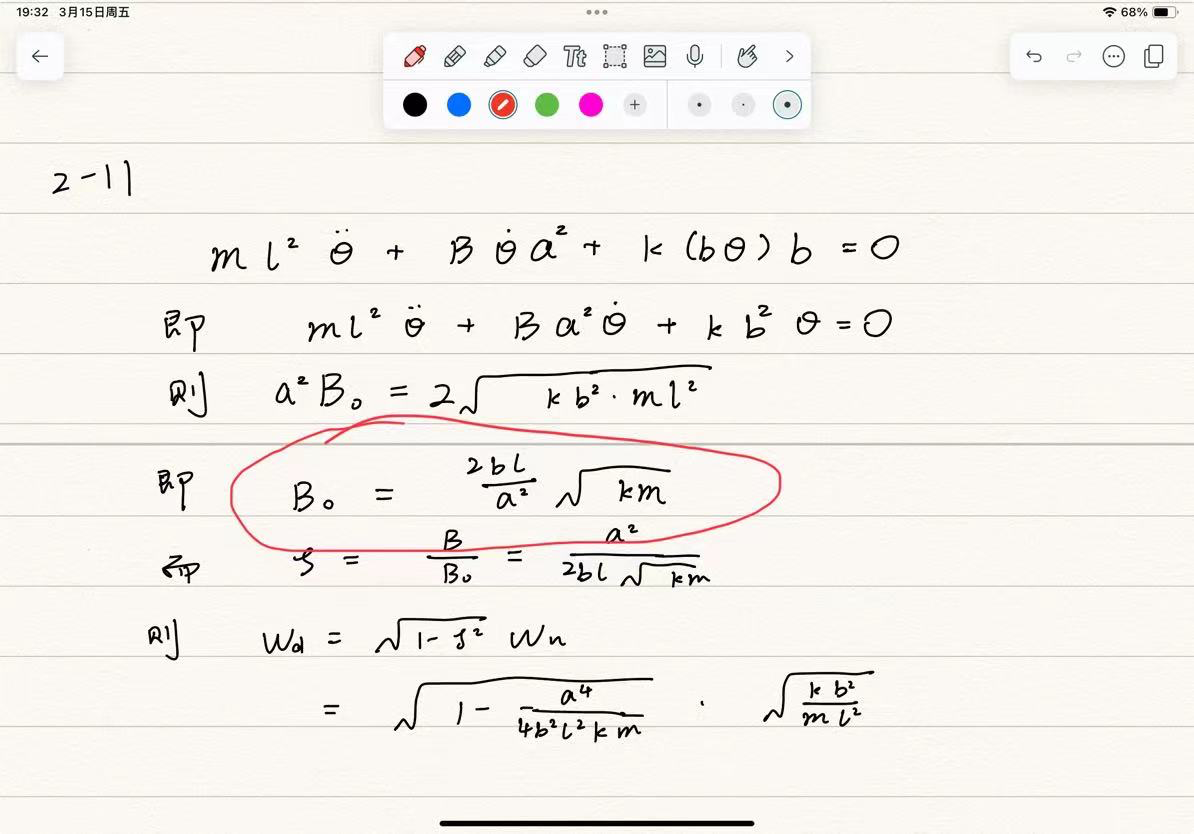 19:32 3月15日周五
68%
Tt
2-11
m l² θ̈ + B θ̇ a² + k (bθ) b = 0
即 m l² θ̈ + B a² θ̇ + k b² θ = 0
则 a² B₀ = 2√(k b² · m l²)
即 B₀ = 2bl/a² √(km)
即 ζ = B/B₀ = a²/(2bl√(km))
则 Wd = √(1-ζ²) Wn
= √(1 - a⁴/(4b²l²km)) · √(k b²/(m l²))